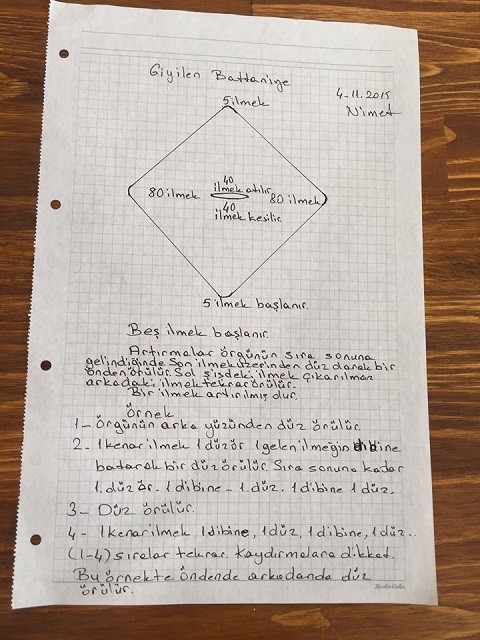 Giyilen Battaniye
4-11.2015
Nimet
5 ilmek
40
ilmek atılır
80 ilmek
80 ilmek
40
ilmek kesilir.
5 ilmek başlanır.
Beş ilmek başlanır.
Artırmalar örgünün sıra sonuna
gelindiğinde son ilmek üzerinden düz olarak bir
önden ötülür. Sol şişdeki ilmek çıkarılmaz
arkadaki ilmek tekrar örülür.
Bir ilmek artırılmış olur.
Örnek
1- Örgünün arka yüzünden düz örülür.
2- 1 kenar ilmek 1 düz ör 1 gelen ilmeğin dibine
batarak bir düz örülür. Sıra sonuna kadar
1. düz ör- 1 dibine - 1. düz. 1 dibine 1 düz.
3- Düz örülür.
4- 1 kenar ilmek 1 dibine, 1 düz, 1 dibine, 1 düz..
(1-4) sıralar tekrar. Kaydırmalara dikkat.
Bu örnekte öndende arkadanda düz
örülür.